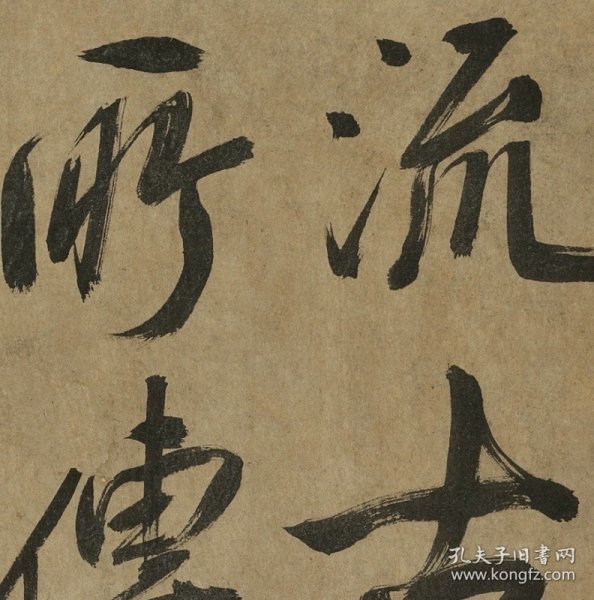 流
所傳
孔夫子旧書网
www.kongfz.com